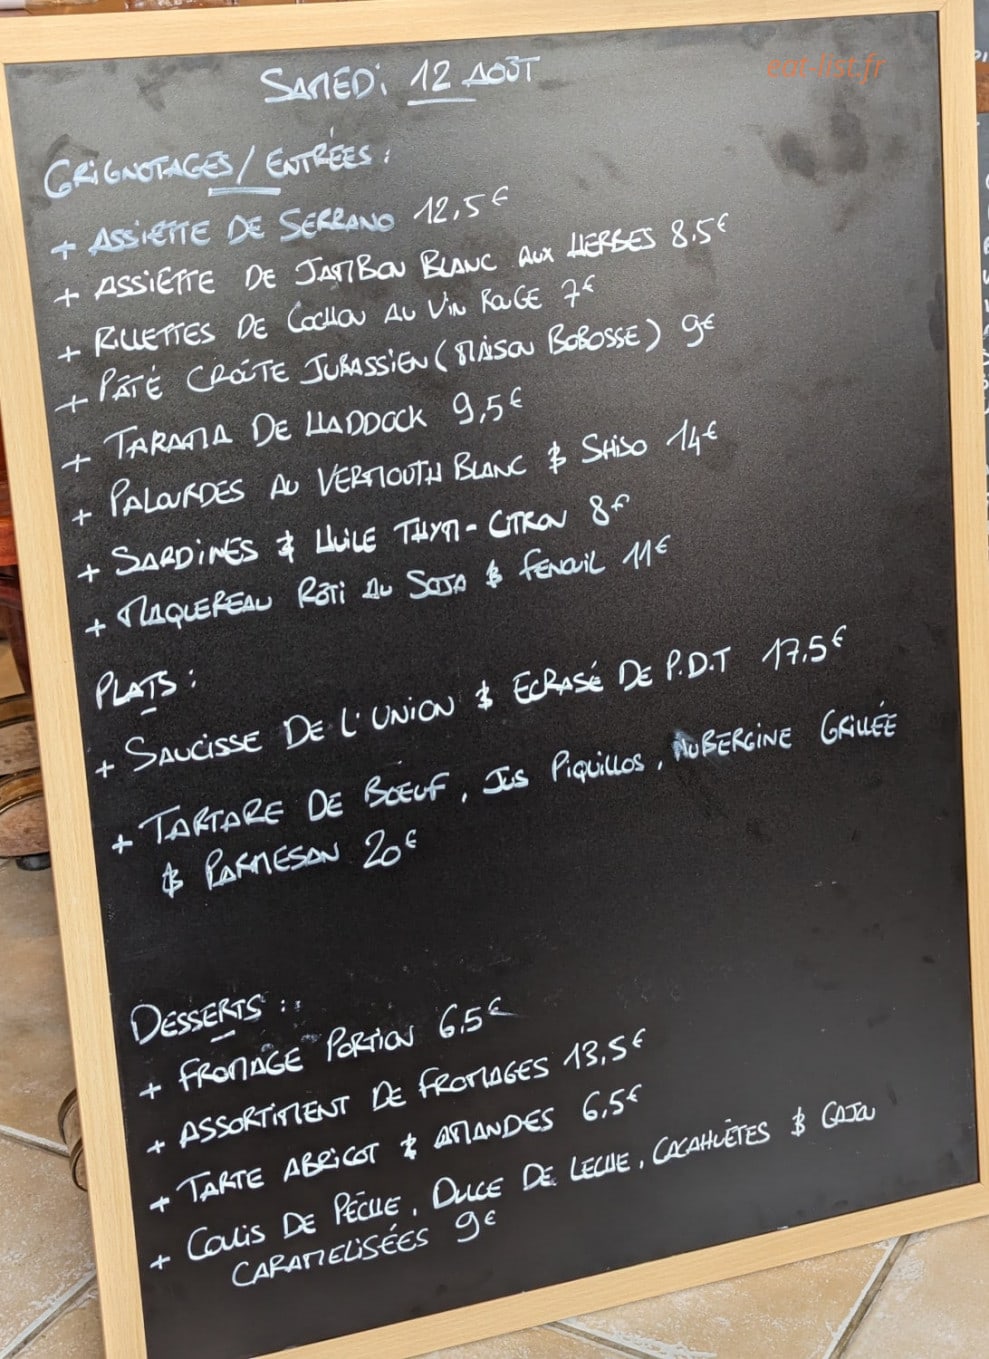 SAMEDI 12 AOÛT
eat-list.fr
GRIGNOTAGES / ENTRÉES :
+ ASSIETTE DE SERRANO 12,5€
+ ASSIETTE DE JAMBON BLANC AUX HERBES 8,5€
+ RILLETTES DE COCHON AU VIN ROUGE 7€
+ PÂTÉ CROÛTE JURASSIEN (MAISON BOBOSSE) 9€
+ TARAMA DE HADDOCK 9,5€
+ PALOURDES AU VERMOUTH BLANC & SHISO 14€
+ SARDINES & HUILE THYM-CITRON 8€
+ MAQUEREAU RÔTI AU SOJA & FENOUIL 11€
PLATS :
+ SAUCISSE DE L'UNION & ECRASÉ DE P.D.T 17,5€
+ TARTARE DE BOEUF, JUS PIQUILLOS, AUBERGINE GRILLÉE
& PARMESAN 20€
DESSERTS :
+ FROMAGE PORTION 6,5€
+ ASSORTIMENT DE FROMAGES 13,5€
+ TARTE ABRICOT & AMANDES 6,5€
+ COULIS DE PÊCHE, DULCE DE LECHE, CACAHUÈTES & CAJOU
CARAMELISÉES 9€